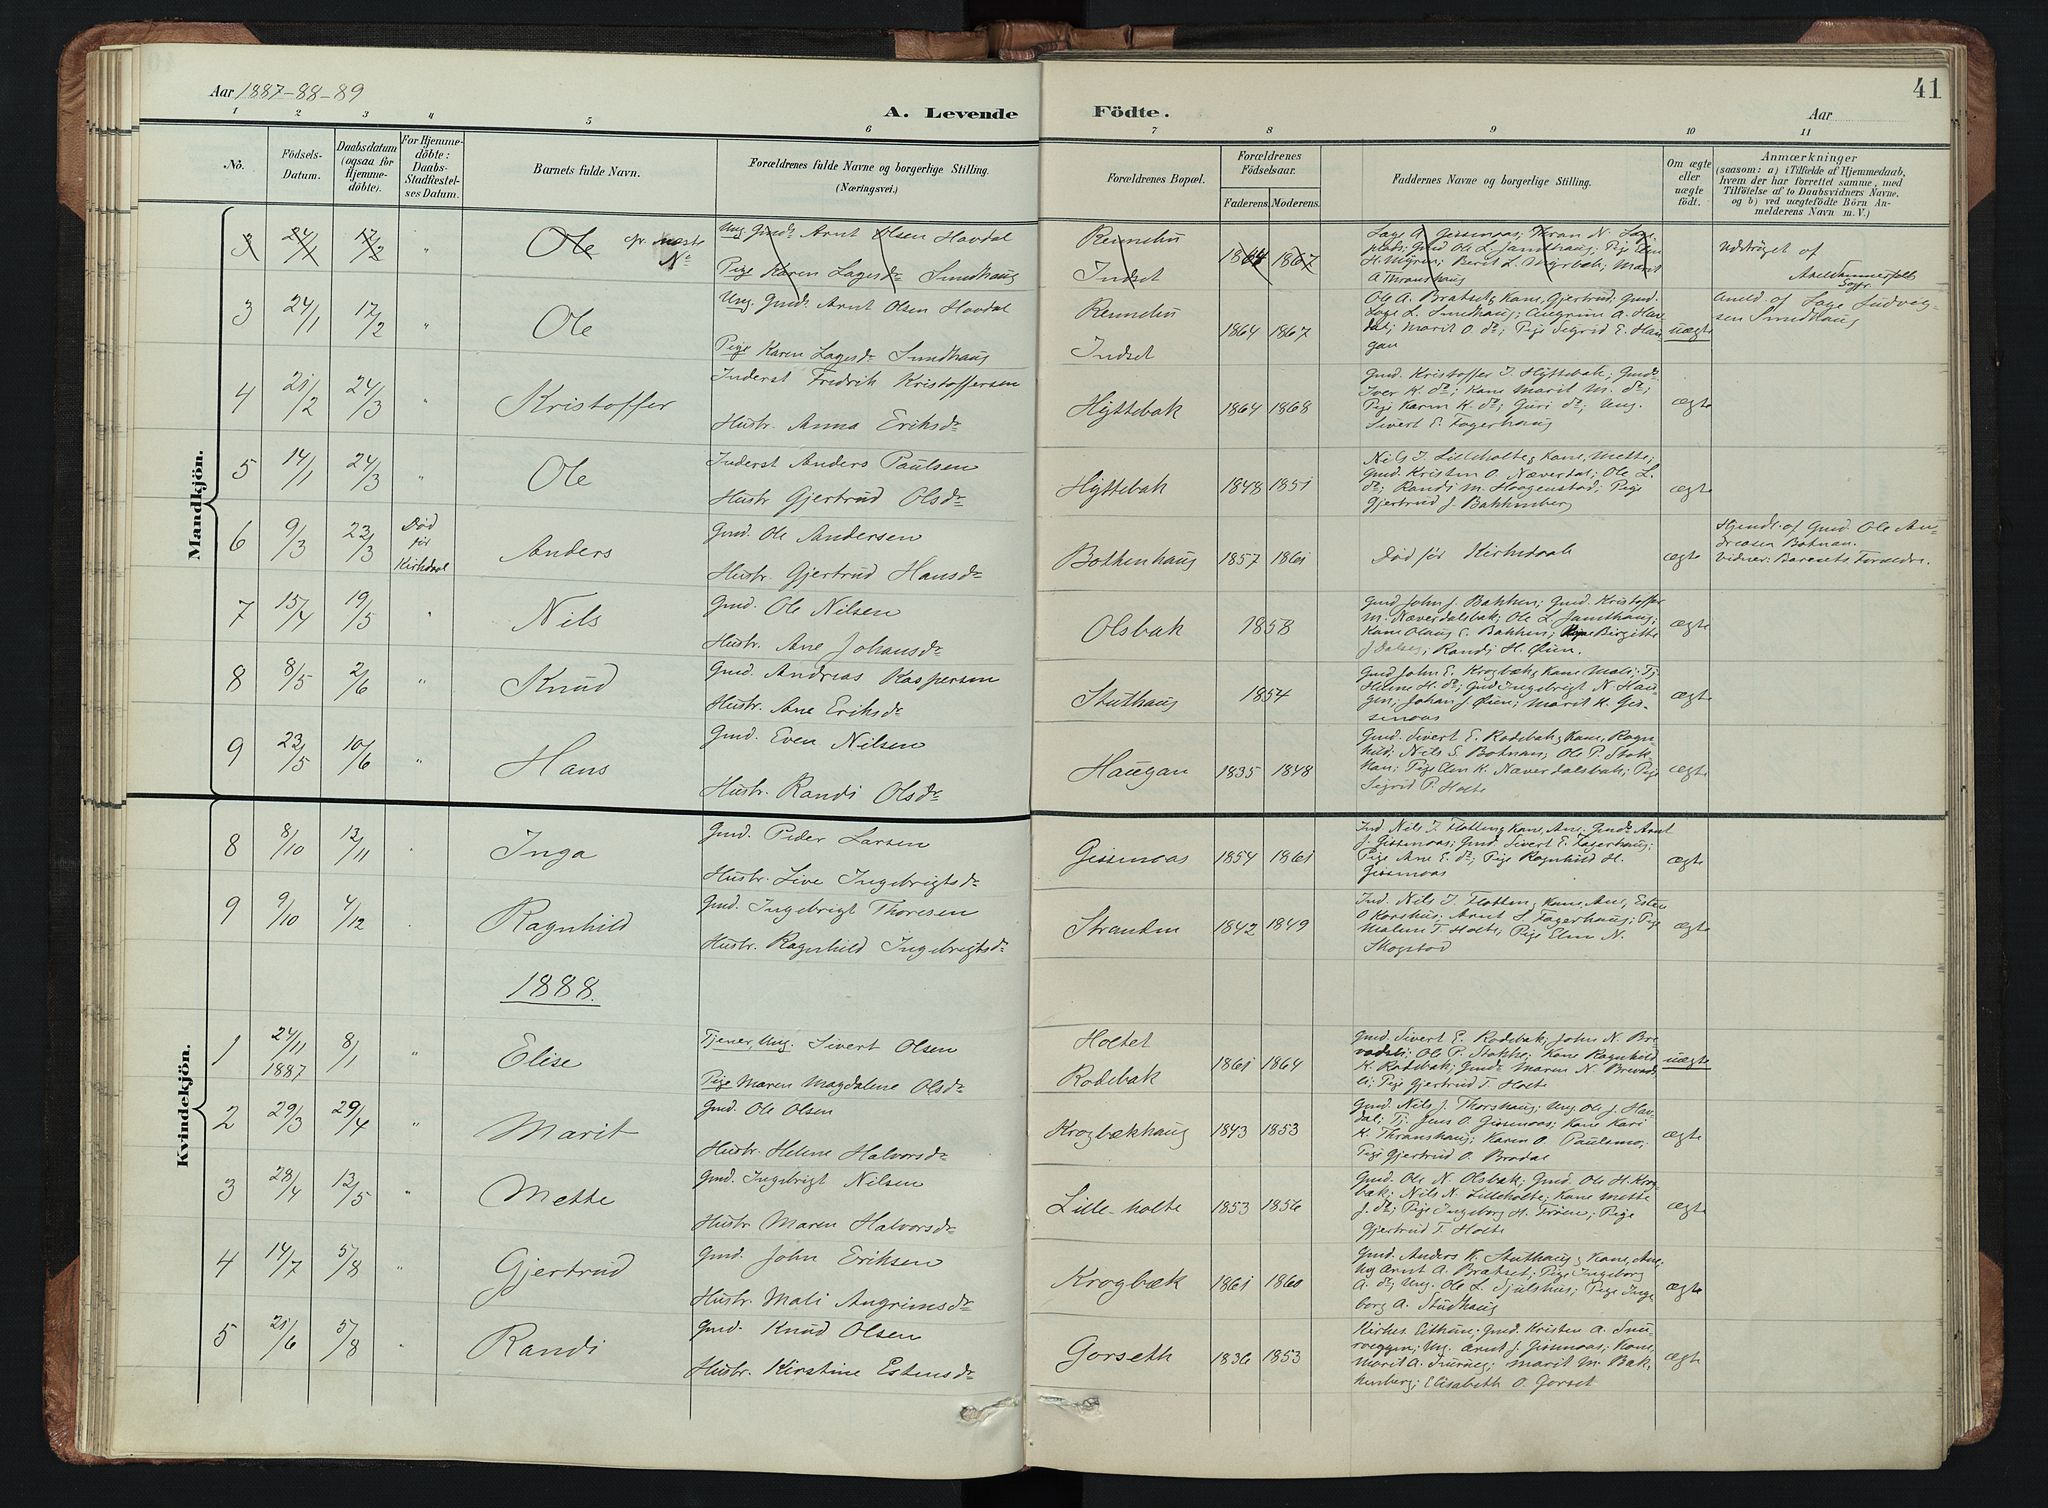 Aar 1887-88-89
A. Levende Födte.
Aar
41
1 2 3 4 5 6 7 8 9 10 11
No.
Födsels-Datum.
Daabsdatum (ogsaa for Hjemmedöbte).
For Hjemmedöbte: Daabs-Stadfæstelses Datum.
Barnets fulde Navn.
Forældrenes fulde Navne og borgerlige Stilling. (Næringsvei.)
Forældrenes Bopæl.
Forældrenes Födselsaar.
Faderens. Moderens.
Faddernes Navne og borgerlige Stilling.
Om ægte eller uægte födt.
Anmærkninger
(saasom: a) i Tilfælde af Hjemmedaab, hvem der har forrettet samme, med Tilföielse af to Daabsvidners Navne. og b) ved uægtefödte Börn Anmelderens Navn m. V.)
Mandkjön.
3 24/1 17/2 " Ole cfr. næste No
Ung. Gmd. Arnt Olsen Havdal
Pige Karen Lagesdr Smedhaug
Rennebu
Indset
1864 1867
Udstrøget af
3 24/1 17/2 " Ole
Ung. Gmd. Arnt Olsen Havdal
Pige Karen Lagesdr Smedhaug
Rennebu
Indset
1864 1867
Ole A. Bratset & Kone, Gjertrud; Gmd.
Lage L. Smedhaug; Angrim A. Hav-
dal; Marit O. do; Pige Sigrid E. Hau-
gan
uægte
Anmeld. af Lage Ludvig-
sen Smedhaug
4 21/2 24/3 " Kristoffer
Inderst Fredrik Kristoffersen
Hustr. Anna Eriksdr
Hyttebak
1864 1868
Gmd. Kristoffer I. Hyttebak; Gmd.
Iver K. do; Kone Marit M. do;
Pige Karen K. do; Guri do; Ung.
Sivert E. Fagerhaug
ægte
5 14/1 24/3 " Ole
Inderst Anders Paulsen
Hustr Gjertrud Olsdr
Hyttebak
1848 1851
Nils I. Lilleholte & Kone, Mette;
Gmd. Kristen O. Næverdal; Ole L.
do; Randi M. Haagenstad; Pige
Gjertrud J. Bakkenberg
ægte
6 9/3 23/3 Død før Kirkdaab Anders
Gmd. Ole Andersen
Hustr. Gjertrud Hansdr
Bottenhaug
1857 1861
Død før Kirkedaab
ægte
Hjmd. af Gmd. Ole An-
dreasen Botnan.
Vidner: Barnets Forældre.
7 15/4 19/5 " Nils
Gmd. Ole Nilsen
Hustr. Ane Johansdr
Olsbak
1858
Gmd John J. Bakken; Gmd. Kristoffer
M. Næverdalsbak; Ole L. Smedhaug;
Kone Olaug E. Bakken; Pige Birgitte
J. Dalseg; Randi H. Øien.
ægte
8 8/5 2/6 " Knud
Gmd. Andreas Kaspersen
Hustr. Ane Eriksdr
Stuthaug
1854
Gmd John E. Krogbæk & Kone Mali; Tj.
Helene H. do; Gmd Ingebrigt N. Hau-
gen; Johan J. Øien; Marit K. Gis-
smoas
ægte
9 23/5 10/6 " Hans
Gmd. Even Nilsen
Hustr. Randi Olsdr
Haugan
1835 1848
Gmd. Sivert E. Rodebak & Kone, Ragn-
hild; Nils E. Botnan; Ole P. Stok-
kan; Pige Elen K. Næverdalsbak; Pige
Sigrid P. Holte
ægte
Kvindekjön.
8 8/10 13/11 Inga
Gmd. Peder Larsen
Hustr. Live Ingebrigtsdr
Gissmoas
1854 1861
Ind. Nils I. Flotten & Kone, Ane; Gmd. Arnt
J. Gissmoas; Gmd Sivert E. Fagerhaug;
Pige Ane E. do; Pige Ragnhild H.
Gissmoas
ægte
9 9/10 4/12 Ragnhild
Gmd. Ingebrigt Thoresen
Hustr. Ragnhild Ingebrigtsdr
Stranden
1842 1849
Ind. Nils I. Flotten & Kone, Ane; Esten
O Korshus; Arnt S. Fagerhaug; Pige
Malene T. Holte; Pige Elen N.
Skogstad
ægte
1888.
1 24/11 1887 8/1 " Elise
Tjener, Ung. Sivert Olsen
Pige Maren Magdalene Olsdr
Holtet
Rodebak
1861 1864
Gmd. Sivert E. Rodebak; John N. Bre-
vadsli; Ole P. Stokke; Kone Ragnhild
K. Rodebak; Gmdr Maren N. Brevads-
li; Pige Gjertrud T. Holte
uægte
2 29/3 29/4 " Marit
Gmd. Ole Olsen
Hustr. Helene Halvorsdr
Krogbækhaug
1843 1853
Gmd. Nils J. Thorshaug; Ung. Ole J. Hav-
dal; Tj. Jens O. Gissmoas; Kone Kari
K. Thranshaug; Karen O. Paulsmo;
Pige Gjertrud O. Bradal
ægte
3 28/4 13/5 " Mette
Gmd. Ingebrigt Nilsen
Hustr Maren Halvorsdr
Lille-holte
1853 1856
Gmd. Ole N. Olsbak; Gmd. Ole H. Krog-
bæk; Nils N. Lilleholte; Kone Mette
J. do; Pige Ingeborg H. Trøen; Pige
Gjertrud T. Holte
ægte
4 14/7 5/8 " Gjertrud
Gmd. John Eriksen
Hustr. Mali Angrimsdr
Krogbæk
1861 1860
Gmd. Anders K. Stuthaug & Kone, Ane;
Ung Arnt A. Bratset; Pige Ingeborg
A. do; Ung. Ole L. Sjulshus; Pige Inge-
borg A. Studhaug
ægte
5 21/6 5/8 Randi
Gmd. Knud Olsen
Hustr. Kirstine Estensdr
Gorseth
1836 1853
Gmd. Kristen A. Snu-
Ung. Arnt J. Gissmoas; Kone
Marit M. Bak-
kenberg; Elisabeth O. Gorset
ægte